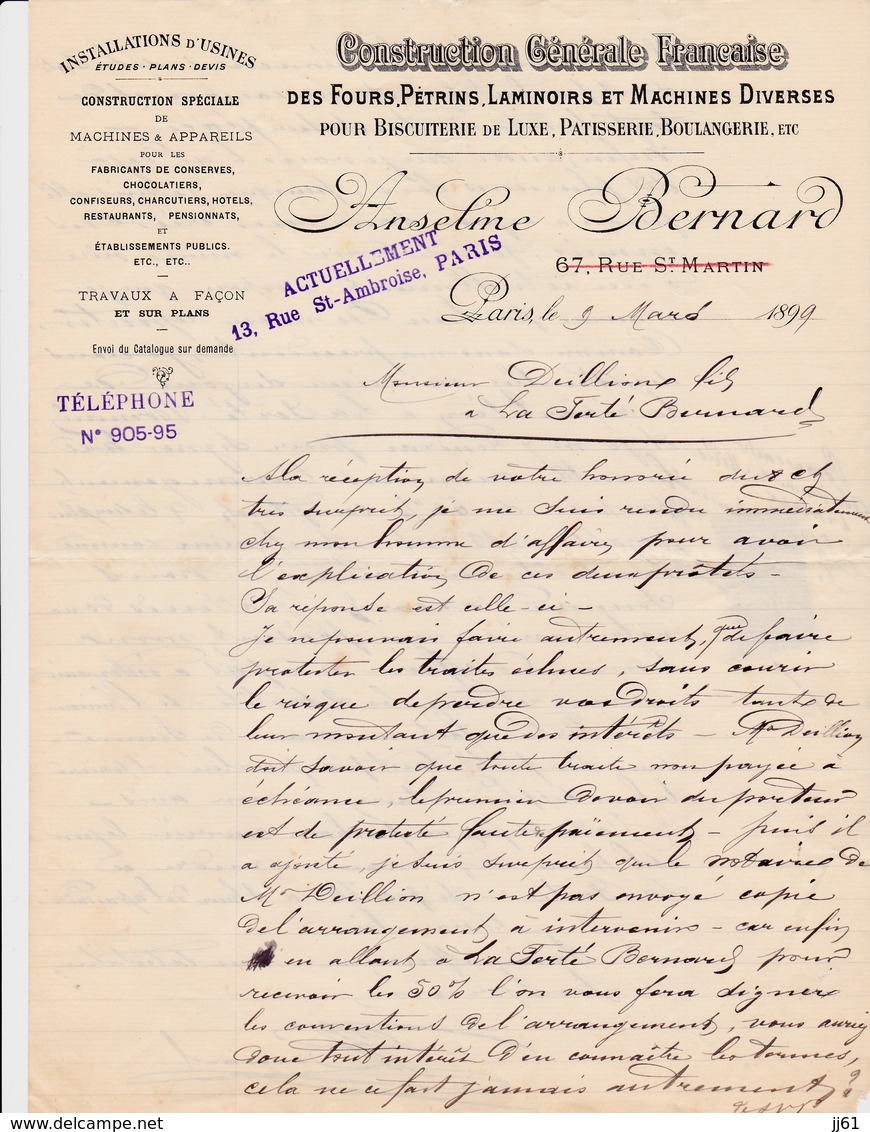 INSTALLATIONS D'USINES
ÉTUDES - PLANS - DEVIS
CONSTRUCTION SPÉCIALE
DE
MACHINES & APPAREILS
POUR LES
FABRICANTS DE CONSERVES,
CHOCOLATIERS,
CONFISEURS, CHARCUTIERS, HOTELS,
RESTAURANTS, PENSIONNATS,
ET
ÉTABLISSEMENTS PUBLICS.
ETC., ETC..
TRAVAUX A FAÇON
ET SUR PLANS
Envoi du Catalogue sur demande
TÉLÉPHONE
N° 905-95
Construction Générale Francaise
DES FOURS, PÉTRINS, LAMINOIRS ET MACHINES DIVERSES
POUR BISCUITERIE DE LUXE, PATISSERIE, BOULANGERIE, ETC
Anselme Bernard
67, RUE ST MARTIN
ACTUELLEMENT
13, Rue St-Ambroise, PARIS
Paris, le 9 Mars 1899
Monsieur Deillion fils
a La Ferté Bernard
A la réception de votre honorée du 8 ct
très surpris, je me suis rendu immédiatement
chez mon homme d'affaires pour avoir
l'explication de ces deux protêts -
Sa réponse est celle-ci -
Je ne pouvais faire autrement, que de faire
protester les traites échues, sans courir
le risque de perdre vos droits tant de
leur montant que des intérêts - Mr Deillion
doit savoir que toute traite non payée à
échéance, le premier devoir du porteur
est de protesté faute de païement - puis il
a ajouté, je suis surpris que le notaire de
Mr Deillion n'est pas envoyé copie
de l'arrangement à intervenir - car enfin
en allant à La Ferté Bernard pour
recevoir les 50% l'on vous fera signer
les conventions de l'arrangement, vous auriez
donc tout intérêt d'en connaître les termes,
cela ne ce fait jamais autrement
jj61